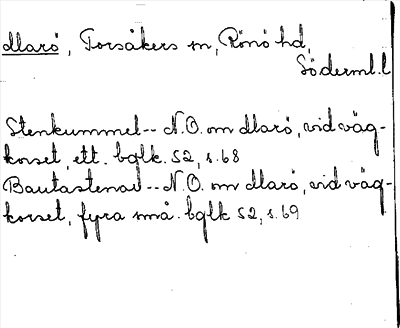 Marö, Torsåkers sn, Rönö hd,
Söderml.l
Stenkummel -- N.O. om Marö, vid väg-
korset, ett. bglk. S2, s.68
Bautastenar -- N.O. om Marö, vid väg-
korset, fyra små. bglk S2, s.69